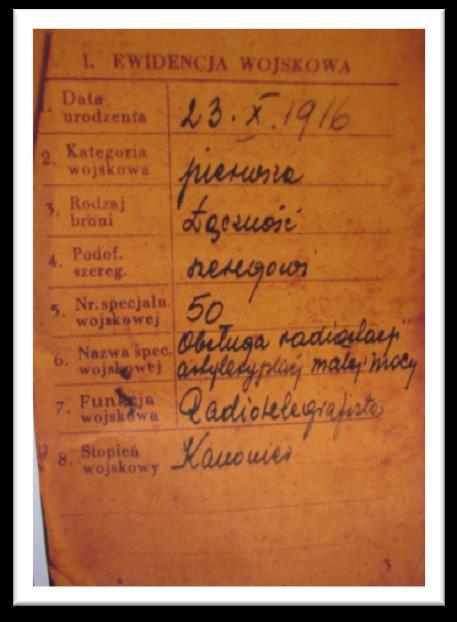 1. EWIDENCJA WOJSKOWA
1. Data urodzenia 23. X. 1916
2. Kategoria wojskowa pierwsza
3. Rodzaj broni Łączność
4. Podof. szereg. szeregowi
5. Nr. specjaln. wojskowej 50
6. Nazwa spec. wojskowej Obsługa radiostacji
artyleryjskiej małej mocy
7. Funkcja wojskowa Radiotelegrafista
8. Stopień wojskowy Kanonier
3